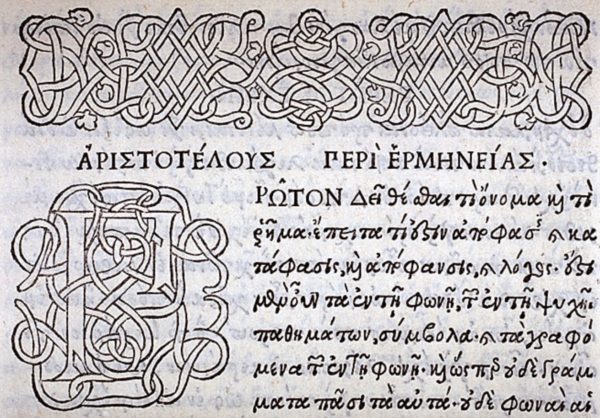 ἈΡΙΣΤΟΤΈΛΟΥΣ ΠΕΡῚ ἙΡΜΗΝΕΊΑΣ·
ΠΡΩ͂ΤΟΝ Δεῖ θέσθαι τί ὄνομα καὶ τί
ῥῆμα· ἔπειτα τί ἐστιν ἀπόφασις καὶ κα
τάφασις, καὶ ἀπόφανσις, καὶ λόγος· ἔστι
μὲν οὖν τὰ ἐν τῇ φωνῇ, τῶν ἐν τῇ ψυχῇ
παθημάτων, σύμβολα· καὶ τὰ γραφό
μενα τῶν ἐν τῇ φωνῇ. καὶ ὥσπερ οὐδὲ γράμ
ματα πᾶσι τὰ αὐτά· οὐδὲ φωναὶ αἱ